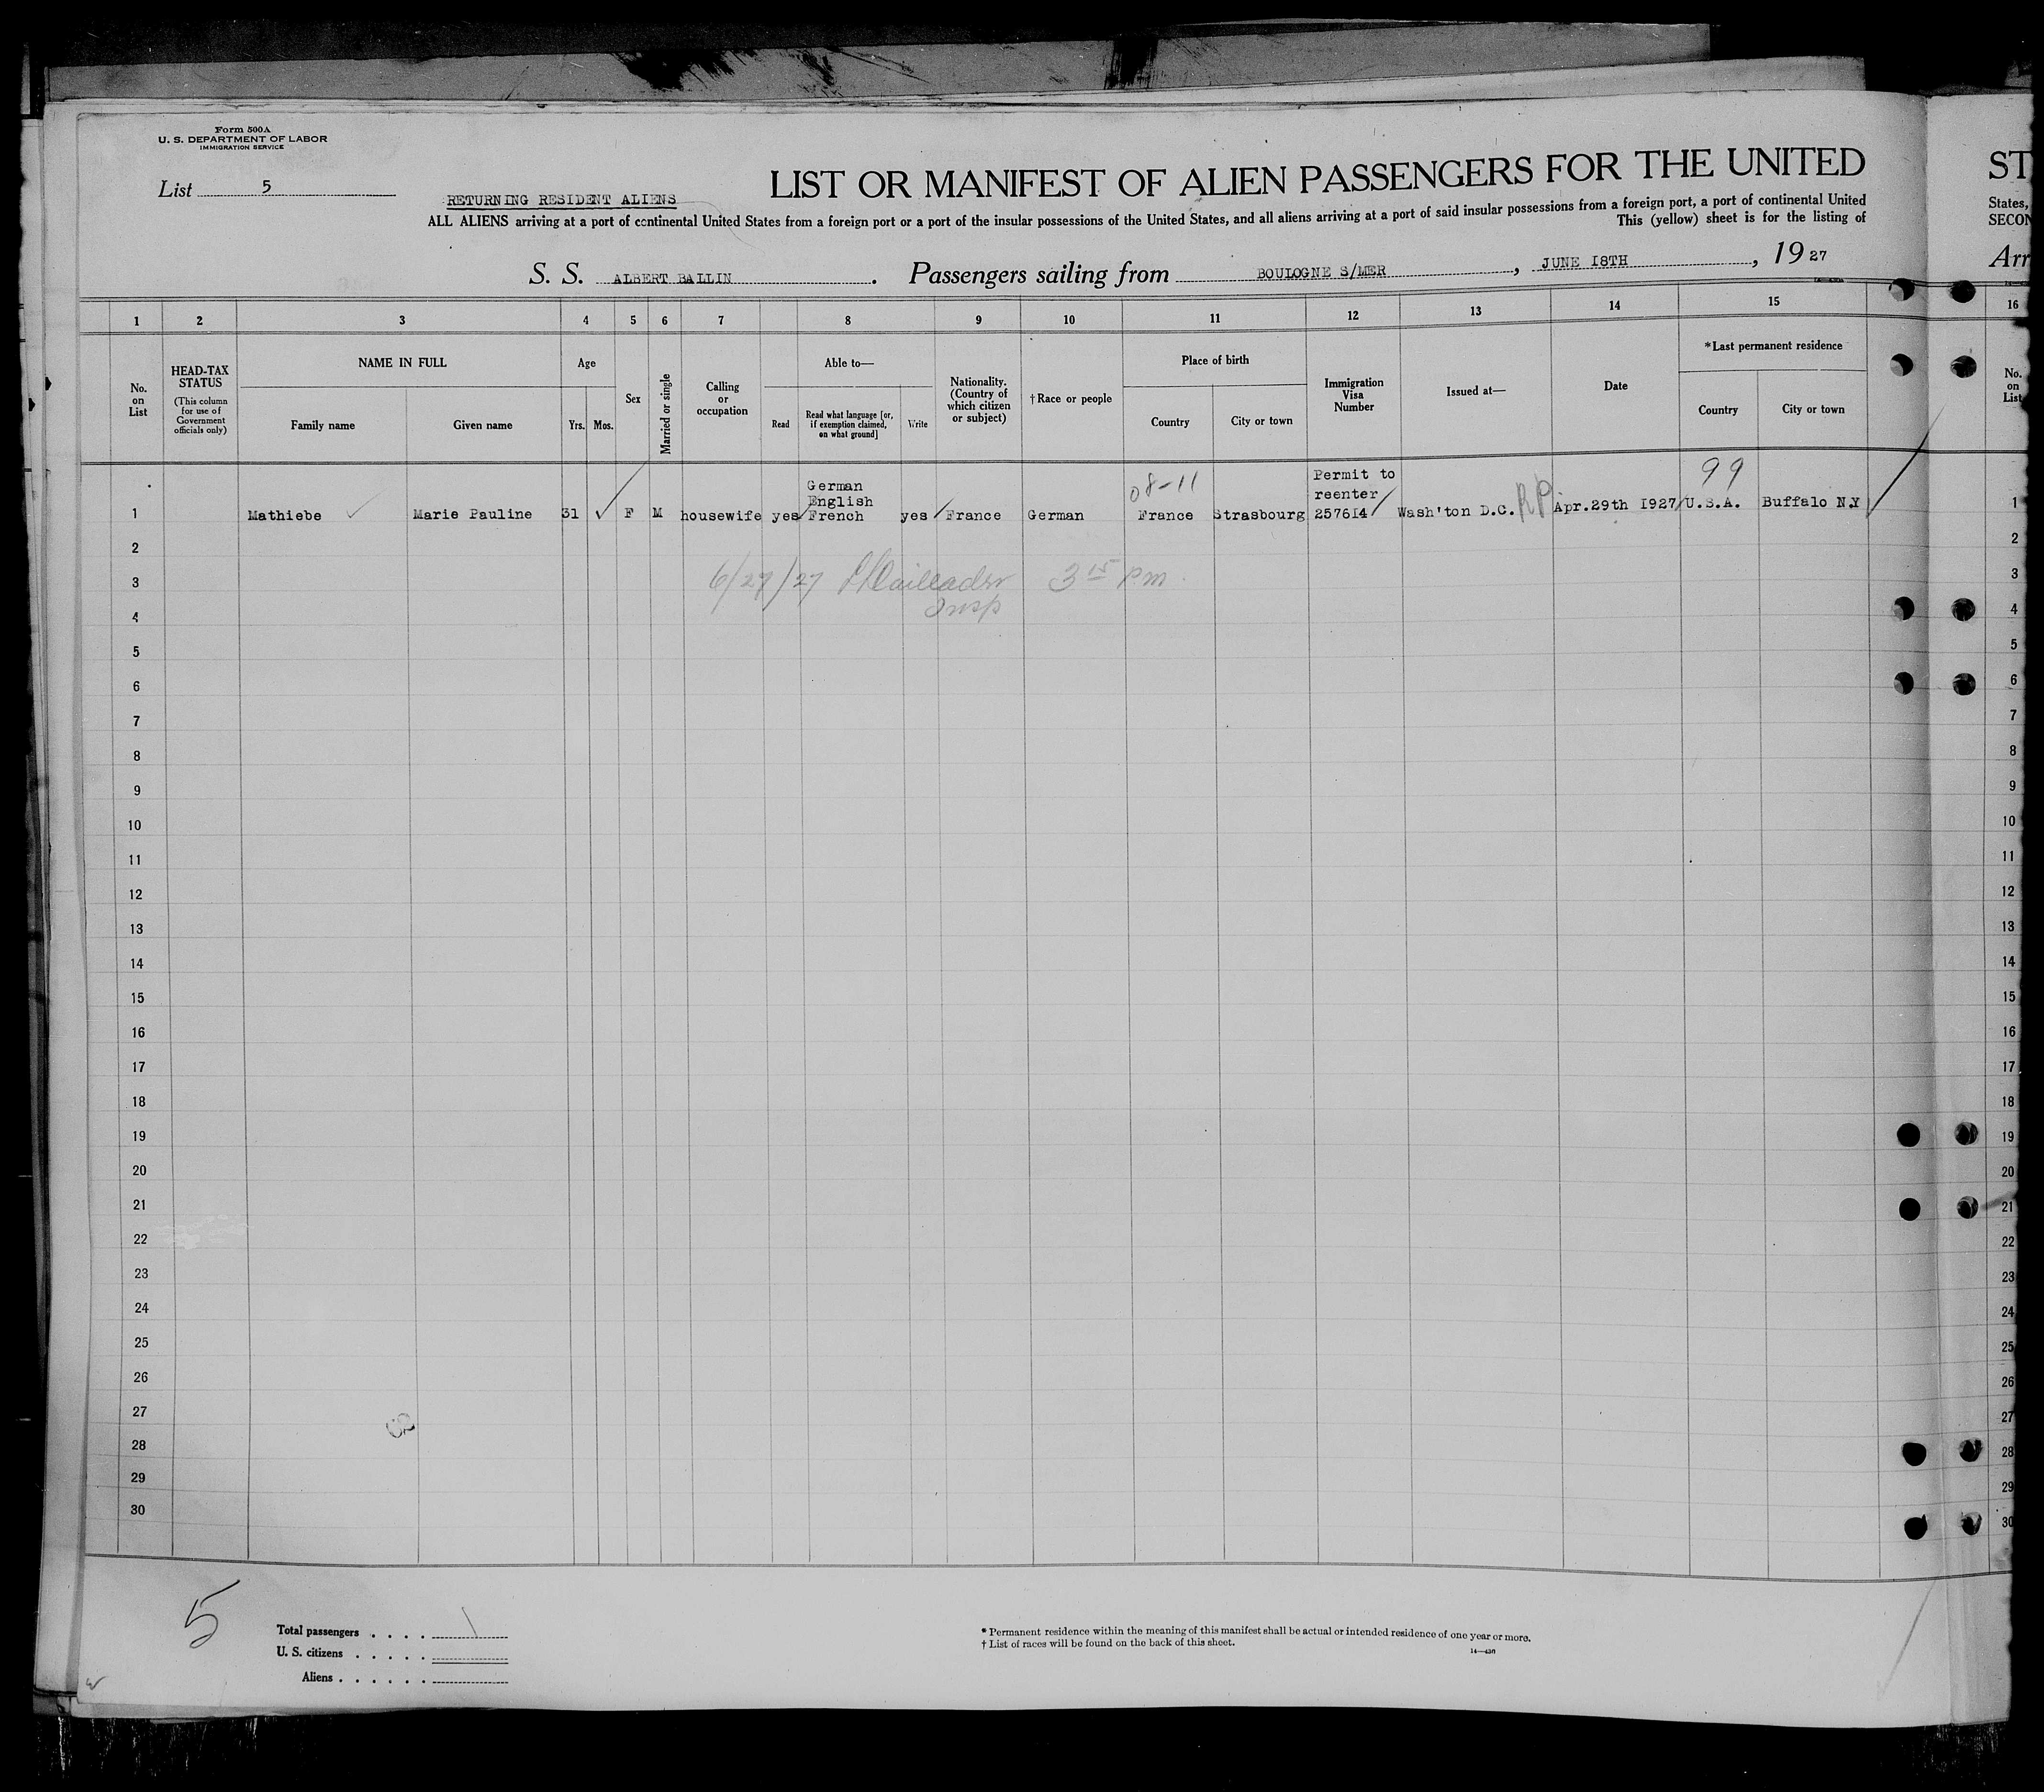 Form 500A
U. S. DEPARTMENT OF LABOR
IMMIGRATION SERVICE
List 5
RETURNING RESIDENT ALIENS
LIST OR MANIFEST OF ALIEN PASSENGERS FOR THE UNITED
ST
ALL ALIENS arriving at a port of continental United States from a foreign port or a port of the insular possessions of the United States, and all aliens arriving at a port of said insular possessions from a foreign port, a port of continental United
States,
This (yellow) sheet is for the listing of
SECON
S. S. ALBERT BALLIN. Passengers sailing from BOULOGNE S/MER, JUNE 18TH, 19 27
Arr
1 2 3 4 5 6 7 8 9 10 11 12 13 14 15 16
No. on List
HEAD-TAX STATUS
(This column for use of Government officials only)
NAME IN FULL
Family name
Given name
Age
Yrs.
Mos.
Sex
Married or single
Calling or occupation
Able to—
Read
Read what language [or, if exemption claimed, on what ground]
Write
Nationality. (Country of which citizen or subject)
†Race or people
Place of birth
Country
City or town
Immigration Visa Number
Issued at—
Date
*Last permanent residence
Country
City or town
No. on List
08-11
99
Permit to
German
English
reenter
1 Mathiebe Marie Pauline 31 F M housewife yes French yes France German France Strasbourg 257614 Wash'ton D.C. RP Apr.29th 1927 U.S.A. Buffalo N.Y 1
2 2
6/27/27 3 15 pm
3 3
Insp
4 4
5 5
6 6
7 7
8 8
9 9
10 10
11 11
12 12
13 13
14 14
15 15
16 16
17 17
18 18
19 19
20 20
21 21
22 22
23 23
24 24
25 25
26 26
27 27
28 28
29 29
30 30
5
Total passengers . . . .
U. S. citizens . . . . .
Aliens . . . . . .
* Permanent residence within the meaning of this manifest shall be actual or intended residence of one year or more.
† List of races will be found on the back of this sheet.